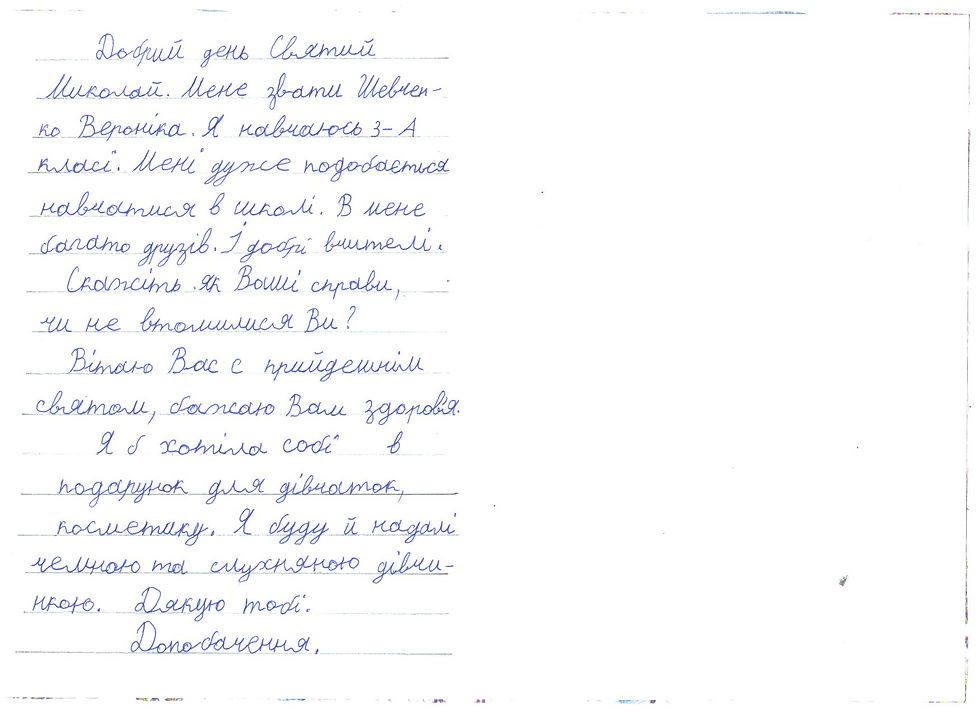 Добрий день Святий
Миколай. Мене звати Шевчен-
ко Вероніка. Я навчаюсь 3-А
класі. Мені дуже подобається
навчатися в школі. В мене
багато друзів. І добрі вчителі.
Скажіть як Ваші справи,
чи не втомилися Ви?
Вітаю Вас с прийдешнім
святом, бажаю Вам здоров'я.
Я б хотіла собі в
подарунок для дівчаток,
косметику. Я буду й надалі
чемною та слухняною дівчи-
нкою. Дякую тобі.
Допобачення.